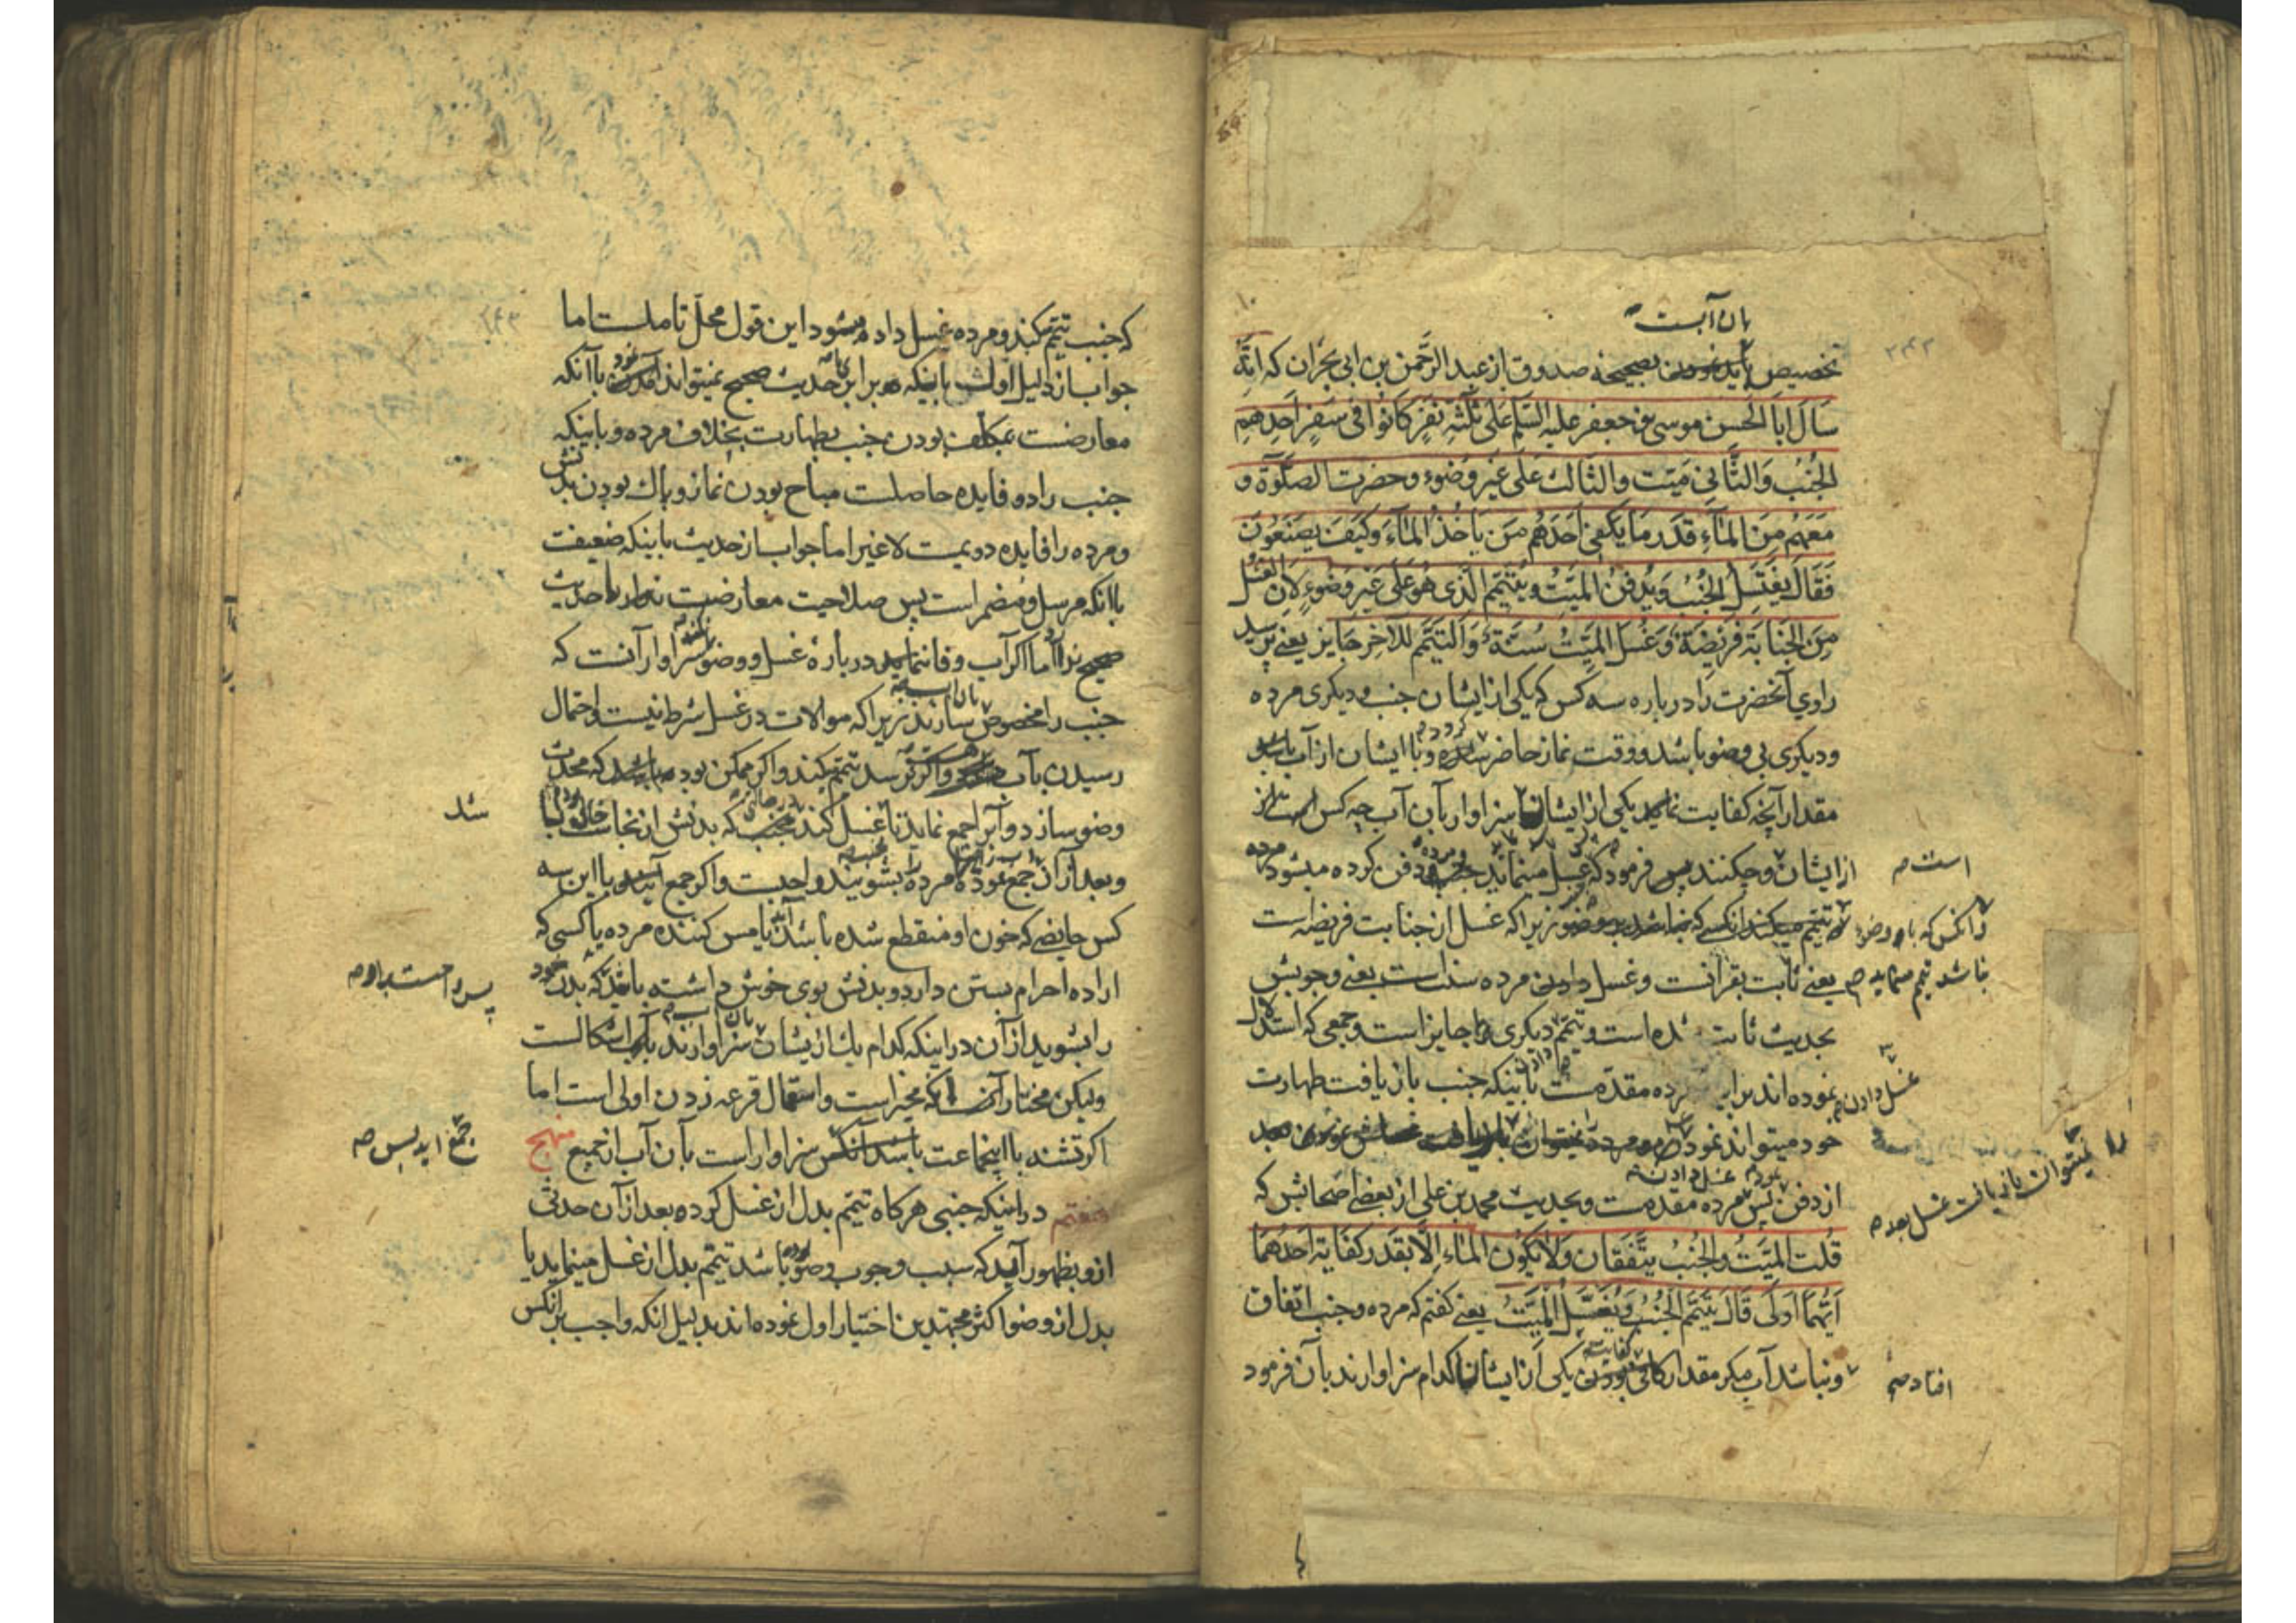 بان آبست
تخصیص بصحیحه صدوق از عبد الرّحمن بن ابی نجران که انّه
سَأَلَ اَبَا الحَسن موسی بن جعفر علیه السّلم عَلی ثَلثَةِ نَفَرٍ کَانُوا فی سَفَرٍ اَحَدِهِم
الجُنُبُ وَالثَّانی مَیّت والثَالث عَلی غَیرِ وَضُوءٍ وحضرت الصَّلوة و
مَعَهُم مِنَ المَآءِ قَدَر مَا یَکفی اَحَدَهُم مَن یَاخُذُ المَآءَ وَکَیفَ یَصنَعُونَ
فَقَالَ یَغتَسِلُ الجُنُب وَیُدفَنُ المَیّتُ ویَتَیَمّم الَّذی هُوَ عَلی غَیرِ وَضُوءٍ لِاَنَّ الغُسل
مِنَ الجَنَابَةِ فَریضَة وَغُسلَ المَیّتُ سُنَّة وَالتَّیَمّم للآخِرِ جَایِز یعنی پرسید
راوی آنحضرت را درباره سه کس که یکی از ایشان جنب و دیگری مرده
ودیکری بی وضو باشد ووقت نماز حاضر وبا ایشان از آب
مقدار آنچه کفایت یکی از ایشان سزاوار بآن آب چه کس است از
است
از ایشان وچکنند پس فرمود که غسل مینماید ودفن کرده میشود مرده
وانکس که باوضو
تیمّم زیرا که غسل از جنابت فریضه است
باشد تیمم مینماید
یعنی ثابت بقرآنست وغسل دادن مرده سنت است یعنی وجوبش
بحدیث ثابت شده است وتیمّم دیکری جایز است وجمعی که استدلال
غسل دادن
نموده اند برای مرده مقدّمست باینکه جنب بازیافت طهارت
خود میتواند نمود
نمیتوان بازیافت غسل بعد
غسل دادن
از دفن پس مرده مقدمست وبحدیث محمد بن علی از بعضی اصحابش که
قُلت المَیّتُ والجُنُب یَتَّفقان وَلاَیَکُون المَاء اِلَّا بقَدر کفایَة اَحَدهُمَا
اَیّهُمَا اَولی قَالَ یَتَیَمّم الجُنُبُ وَیُغَسَّلُ المَیِّتُ یعنی کفتم که مرده وجنب اتفاق
افتاد
ونباشد آب مکر مقدار یکی از ایشان کدام سزاوارند بآن فرمود
که جنب تیمّم کند ومرده غسل داده میشود این قول محلّ تاملست اما
جواب از دلیل اول باینکه برابر حدیث صحیح نمیتواند باآنکه
معارضست بمکلف بودن جنب بطهارت بخلاف مرده وباینکه
جنب را دو فایده حاصلست مباح بودن نماز وپاک بودن بدنش
ومرده را فایده دویمست لاغیر اما جواب از حدیث باینکه ضعیفت
باآنکه مرسل ومضمر است پس صلاحیت معارضت حدیث
صحیح ندارد اما اکر آب وفا ننماید درباره غسل ووضو سزاوار آنست که
جنب را مخصوص سازند زیرا که موالات در غسل شرط نیست واحتمال
رسیدن بآب واکر نرسد تیمّم کند واکر ممکن بود که محدث
شد
وضو سازد وآبرا جمع نماید تا غسل کند که بدنش از نجاست خالی
وبعد از آن جمع نموده مرده را بشویند واجبست واکر جمع با این سه
کس حایضی که خون او منقطع شده باشد یا مس کننده مرده یا کسی که
اراده احرام بستن دارد وبدنش بوی خوش داشته باشد که بدن خود
را بشوید از آن در اینکه کدام یک از یشان سزاوارند اشکالست
ولیکن مختار آنست که مخیر است واستعمال قرعه زدن اولی است اما
جمع آید پس
اکر تشنه با اینجماعت باشد آنکس سزاوار است بآن آب از جمیع منهج
هفتم در اینکه جنبی هرکاه تیمّم بدل از غسل کرده بعد از آن حدثی
از و بظهور آید که سبب وجوب وضو باشد تیمّم بدل از غسل مینماید یا
بدل از وضو اکثر مجتهدین اختیار اول نموده اند بدلیل آنکه واجب بر آنکس